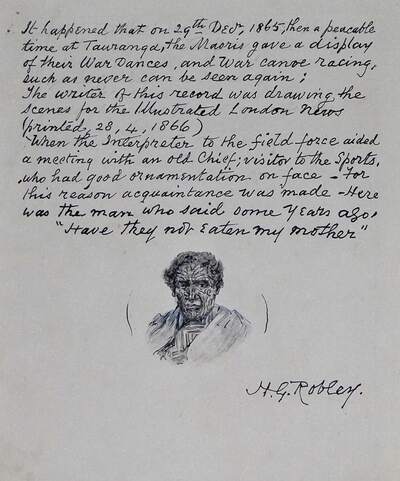 It happened that on 29th Decr, 1865, then a peacable
time at Tauranga, the Maoris gave a display
of their War Dances, and War canoe racing,
such as never can be seen again;
The writer of this record was drawing, the
scenes for the Illustrated London News
(printed, 28, 4, 1866)
When the Interpreter to the field force aided
a meeting with an old Chief; visitor to the Sports,
who had good ornamentation on face – For
this reason acquaintance was made – Here
was the man who said some years ago,
"Have they not Eaten my mother"
H. G. Robley.